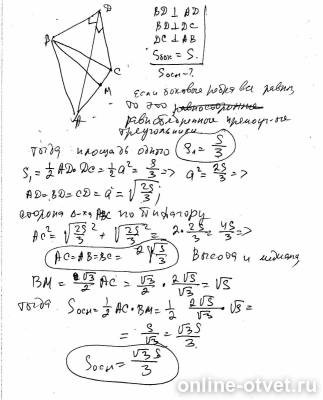 D
B
C
M
A
BD ⊥ AD
BD ⊥ DC
DC ⊥ AB
Sбок = S.
Sосн - ?
Если боковые ребра все равны,
то это равносторонние
равнобедренные прямоуг-ые
треугольники
тогда площадь одного S₁ = S/3
S₁ = 1/2 AD·DC = 1/2 a² = S/3 => a² = 2S/3 =>
AD = BD = CD = a = √(2S/3);
сторона Δ-ка ABC по Пифагору
AC² = √(2S/3)² + √(2S/3)² = 2·2S/3 = 4S/3 =>
AC = AB = BC = 2√(S/3) Высота и медиана,
BM = √3/2 AC = √3/2 · 2√S/√3 = √S
тогда Sосн = 1/2 AC·BM = 1/2 · 2√S/√3 · √S =
= S/√3 = √3S/3.
Sосн = √3S/3
online-otvet.ru